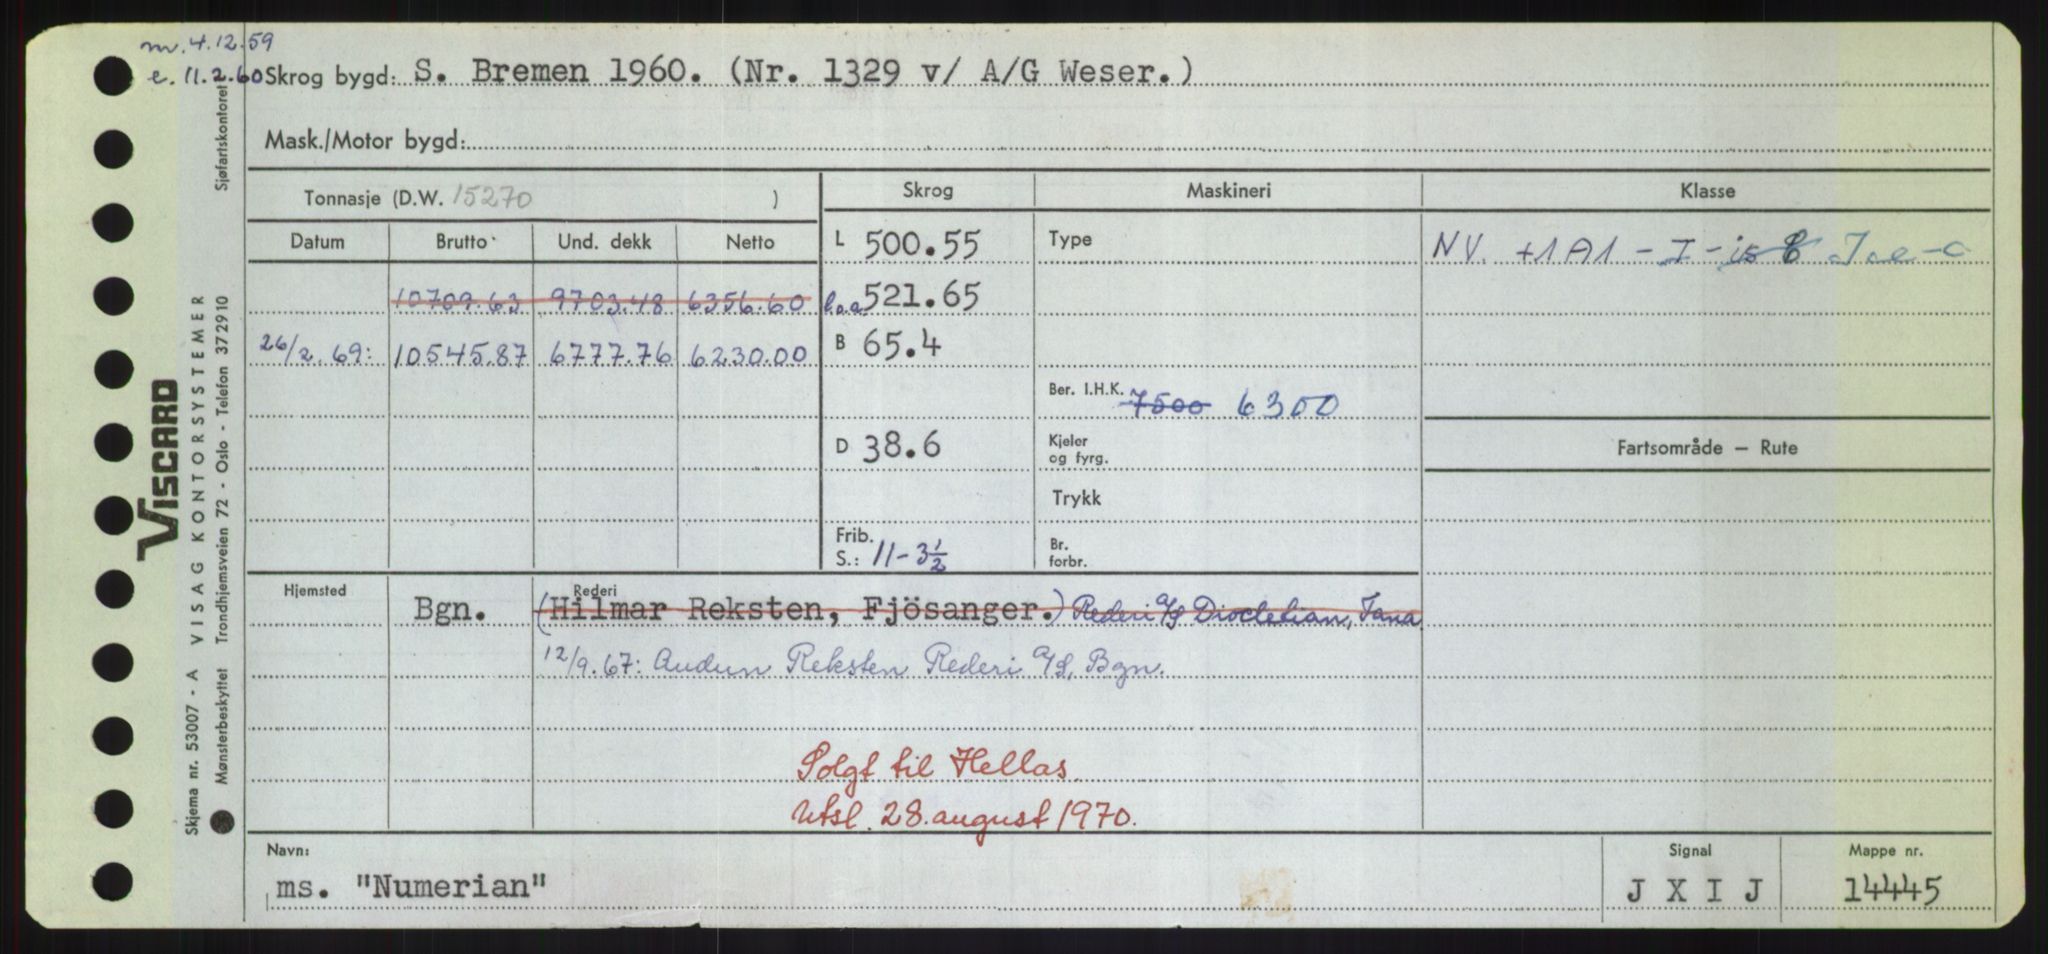 m. 4.12.59
e. 11.2.60 Skrog bygd: S. Bremen 1960. (Nr. 1329 v/ A/G Weser.)
Mask./Motor bygd:
Tonnasje (D.W. 15270 )
Skrog
Maskineri
Klasse
Datum Brutto Und. dekk Netto
L 500.55
Type
NV. +1A1 - I - is C
10709.63 9703.48 6356.60
l.o.a. 521.65
26/2.69: 10545.87 6777.76 6230.00
B 65.4
Ber. I.H.K. 7500 6300
D 38.6
Kjeler
og fyrg.
Fartsområde – Rute
Trykk
Frib.
S.: 11-3½
Br.
forbr.
Hjemsted
Rederi
Bgn. (Hilmar Reksten, Fjösanger.) Rederi A/S Diocletian, Tana
12/9.67: Audun Reksten Rederi A/S, Bgn.
Solgt til Hellas.
Utsl. 28. august 1970.
Navn:
Signal
Mappe nr.
ms. "Numerian"
J X I J
14445
VISCARD
Skjema nr. 53007 - A VISAG KONTORSYSTEMER
Mønsterbeskyttet Trondhjemsveien 72 - Oslo - Telefon 372910
Sjøfartskontoret